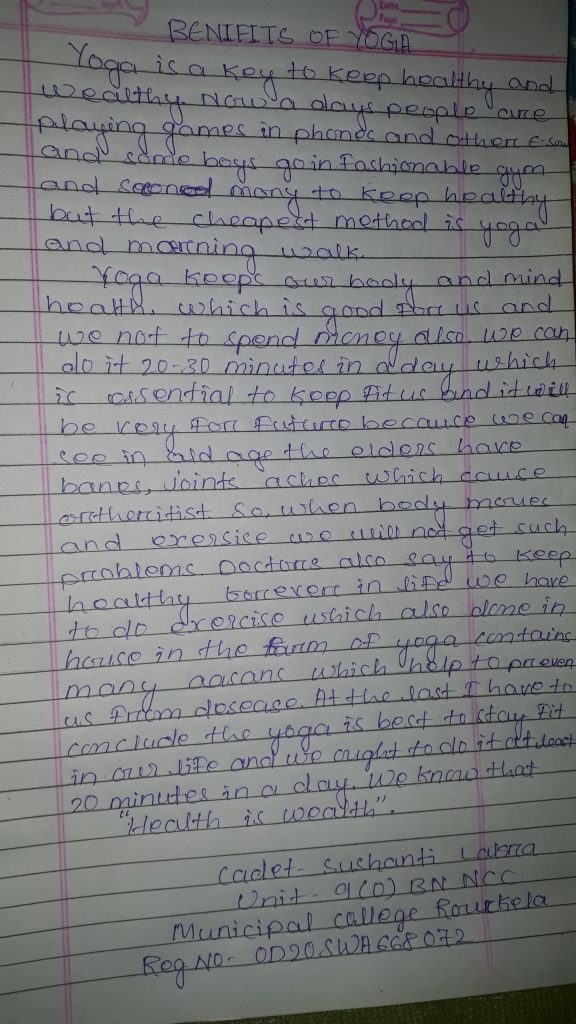 Date
Page
BENIFITS OF YOGA
Yoga is a key to keep healthy and
wealthy. Now a days people are
playing games in phones and other
and some boys go in fashionable gym
and many to keep healthy
but the cheapest method is yoga
and morning walk.
Yoga keeps our body and mind
health, which is good for us and
we not to spend money also. we can
do it 20-30 minutes in a day which
is essential to keep fit us and it will
be very for future because we can
see in old age the elders have
banes, joints aches which cause
orthercitist so, when body moves
and exersise we will not get such
problems. Doctors also say to keep
healthy forever in life we have
to do exercise which also done in
house in the form of yoga contains
many aasans which help to preven
us from desease. At the last I have to
conclude the yoga is best to stay fit
in our life and we ought to do it at least
20 minutes in a day. We know that
"Health is wealth".
Cadet- Suchanti Lakra
Unit - 9(O) BN NCC
Municipal college Rourkela
Reg NO- OD20SWA668072